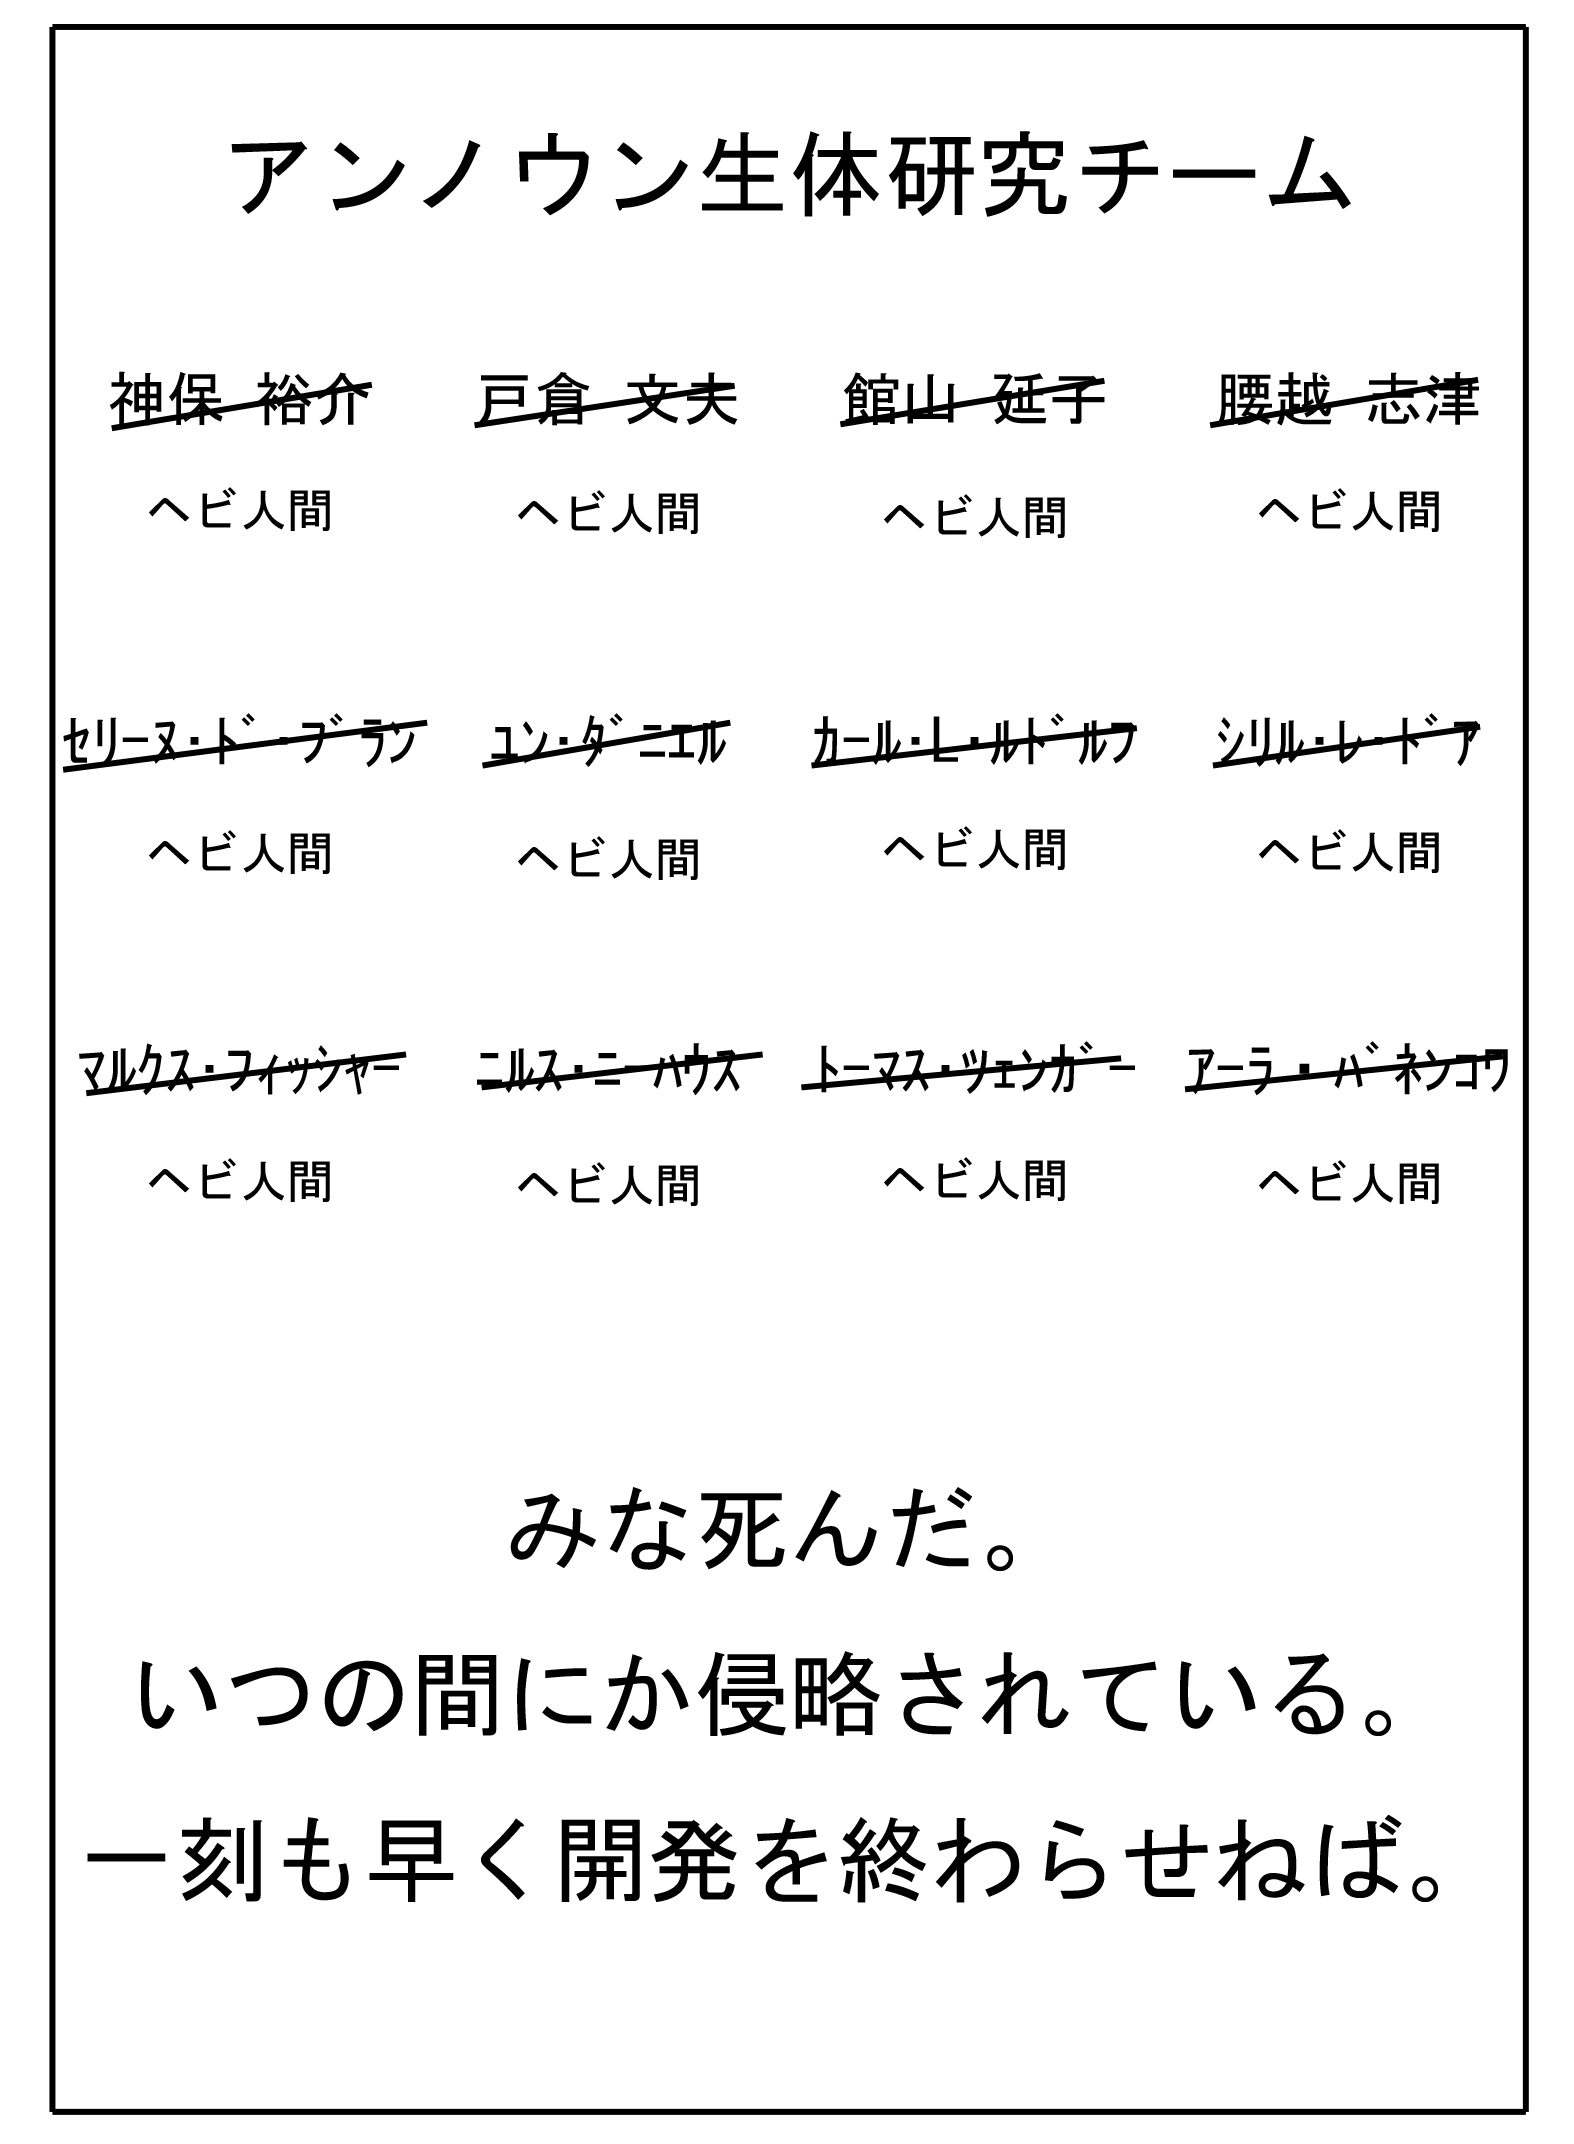 アンノウン生体研究チーム
神保 裕介 戸倉 文夫 館山 延子 腰越 志津
ヘビ人間 ヘビ人間 ヘビ人間 ヘビ人間
ｾﾘｰﾇ･ﾄﾞｰﾌﾞﾗﾝ ﾕﾝ･ﾀﾞﾆｴﾙ ｶｰﾙ･L･ﾙﾄﾞﾙﾌ ｼﾘﾙ･ﾚｰﾄﾞｱ
ヘビ人間 ヘビ人間 ヘビ人間 ヘビ人間
ﾏﾙｸｽ･ﾌｨｯｼｬｰ ﾆﾙｽ･ﾆｰﾊｳｽ ﾄｰﾏｽ･ﾂｪﾝｶﾞｰ ｱｰﾗ･ﾊﾞﾈﾝｺﾜ
ヘビ人間 ヘビ人間 ヘビ人間 ヘビ人間
みな死んだ。
いつの間にか侵略されている。
一刻も早く開発を終わらせねば。